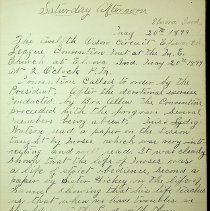 Saturday afternoon
Elnora, Ind.
May 20th 1899
The Twelfth Odon Circuit Epworth
League Convention met at the M. E.
Church at Elnora Ind May 20th 1899
at 2 O'clock P.M.
Convention called to order by the
President. After the devotional exercises
conducted by Bro Allen the Convention
proceeded with the program several
members being absent. Miss
had a paper on the lesson
taught by Moses, which was very inter-
esting and well read. It was clearly
shown that the life of Moses was
a life of strict obedience, second a
paper by Sister on the life of
showing that his life teaches
us that when we have troubles we